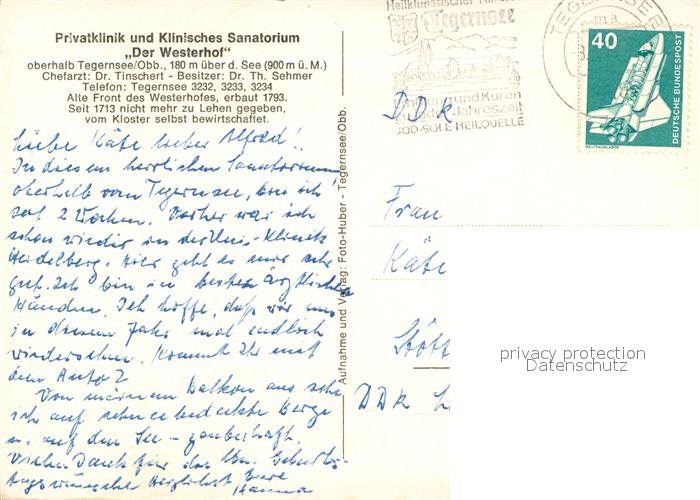 Privatklinik und Klinisches Sanatorium
„Der Westerhof"
oberhalb Tegernsee/Obb., 180 m über d. See (900 m ü. M.)
Chefarzt: Dr. Tinschert - Besitzer: Dr. Th. Sehmer
Telefon: Tegernsee 3232, 3233, 3234
Alte Front des Westerhofes, erbaut 1793.
Seit 1713 nicht mehr zu Lehen gegeben,
vom Kloster selbst bewirtschaftet.
Liebe Käte, lieber Alfred!
In diesem herrlichen Sanatorium
oberhalb vom Tegernsee, bin ich
seit 2 Wochen. Vorher war ich
schon wieder in der Uni-Klinik
Heidelberg. Hier geht es mir sehr
gut. Ich bin in besten ärztlichen
Händen. Ich hoffe, daß wir uns
in diesem Jahr mal endlich
wiedersehen. Kommt Ihr mit
dem Auto?
Von meinem Balkon aus sehe
ich auf schneebedeckte Berge
u. auf den See - zauberhaft.
Vielen Dank für die lbn. Geburts-
tagswünsche Herzlichst Eure
Hanna
Aufnahme und Verlag: Foto-Huber - Tegernsee/Obb.
Heilklimatischer Kurort
Tegernsee
und Kuren
zu jeder Jahreszeit
JOD-SOLE HEILQUELLE
TEGERNSEE
40
DEUTSCHE BUNDESPOST
WELTRAUMLABOR
DDR
Frau
Käte
Stött
DDR
privacy protection
Datenschutz